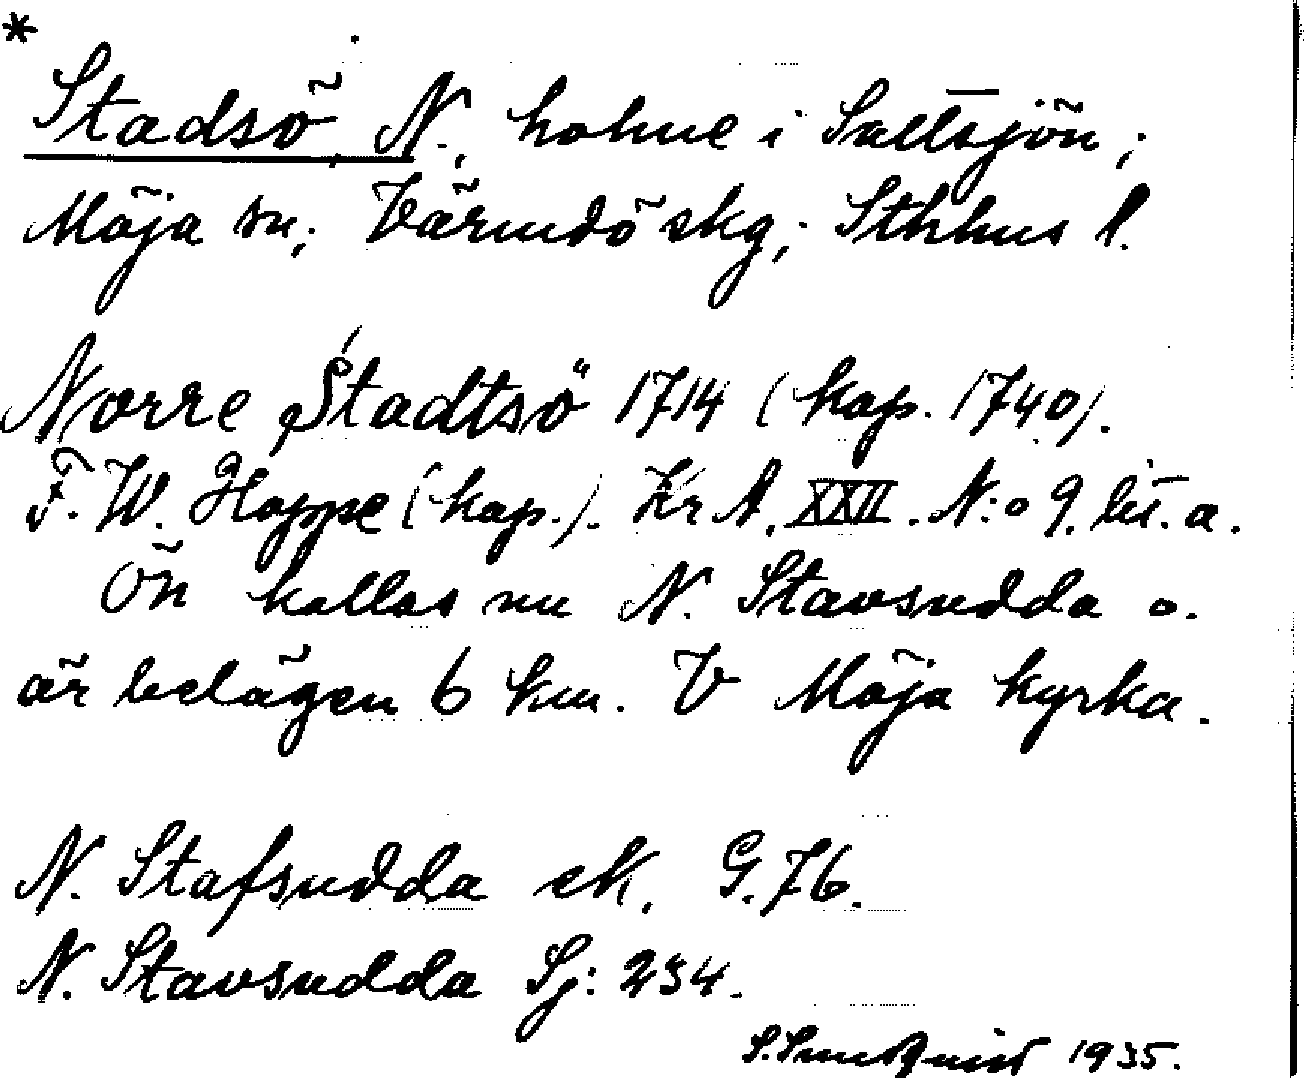 * Stadsö, N., holme i Saltsjön;
Möja sn; Värmdö skg; Sthlms l.
Norre Stadtsö 1714 (kop. 1740).
F. W. Hoppe (kop.). Kr A. XXII. N:o 9. lit. a.
Ön kallas nu N. Stavsudda o.
är belägen 6 km. V Möja kyrka.
N. Stafsudda ek. G. 76.
N. Stavsudda Sj: 234.
1935.